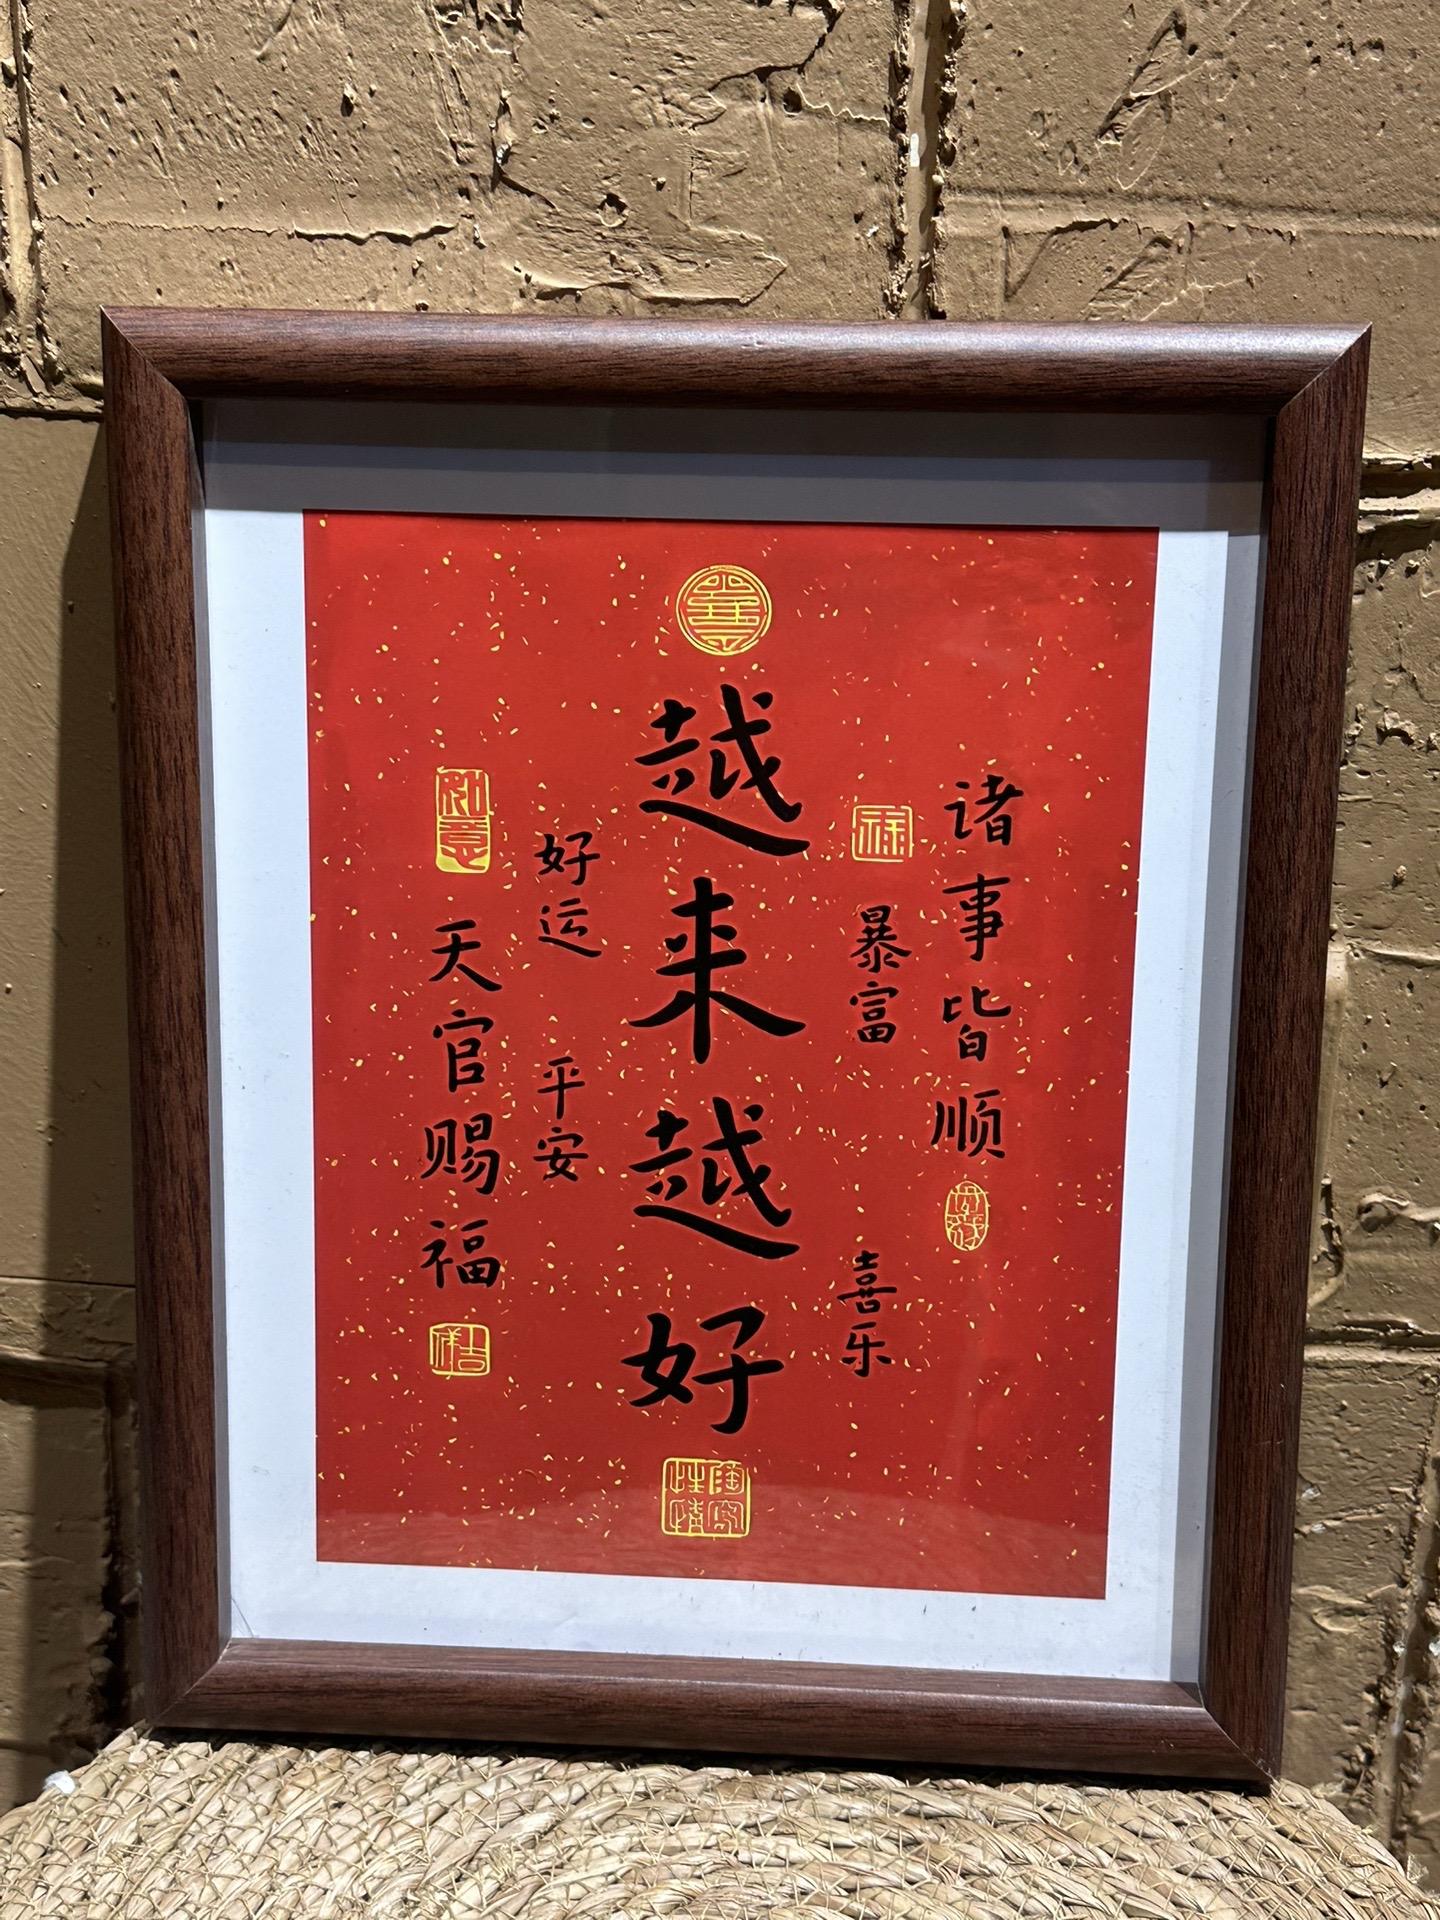 诸事皆顺
暴富
喜乐
越来越好
好运
平安
如意
天官赐福
吉祥